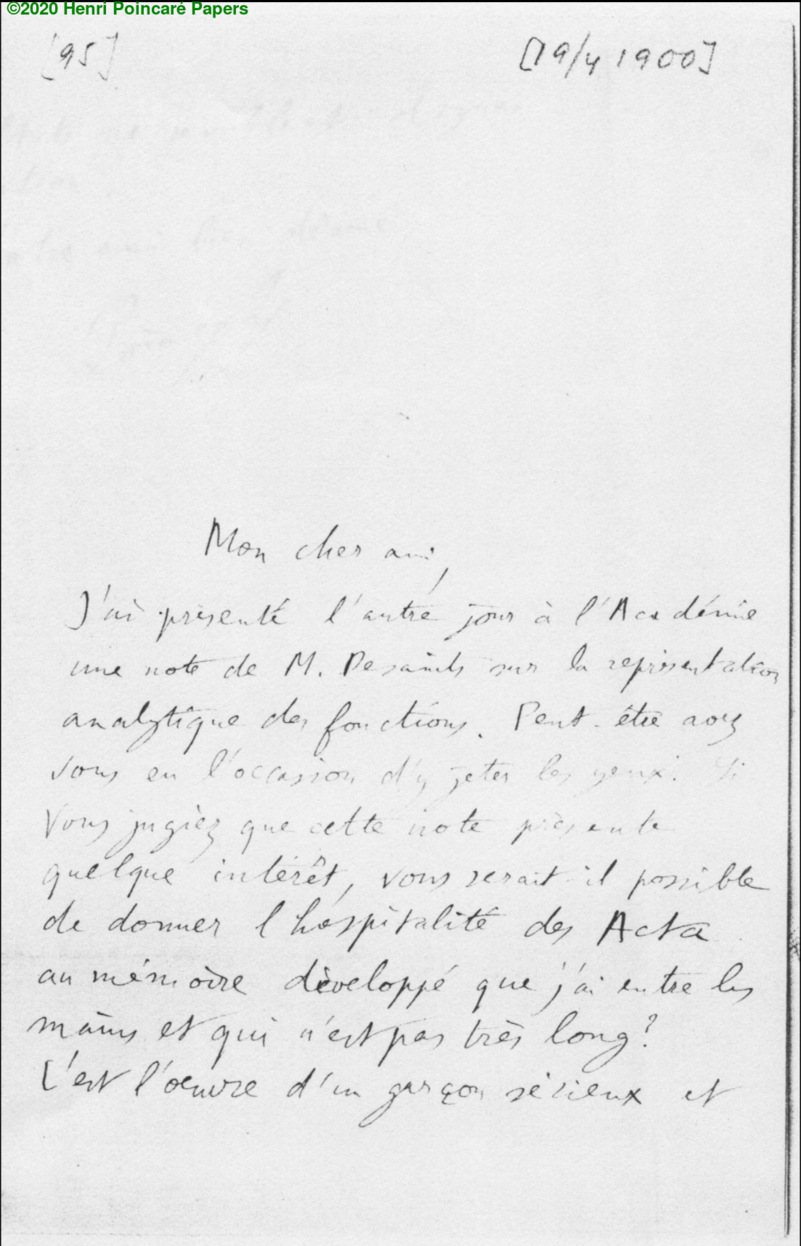 ©2020 Henri Poincaré Papers
[95]
[19/4 1900]
Mon cher ami,
J'ai présenté l'autre jour à l'Académie
une note de M. Desaints sur la représentation
analytique des fonctions. Peut-être avez
vous eu l'occasion d'y jeter les yeux. Si
vous jugiez que cette note présente
quelque intérêt, vous serait-il possible
de donner l'hospitalité des Acta
au mémoire développé que j'ai entre les
mains et qui n'est pas très long?
C'est l'oeuvre d'un garçon sérieux et